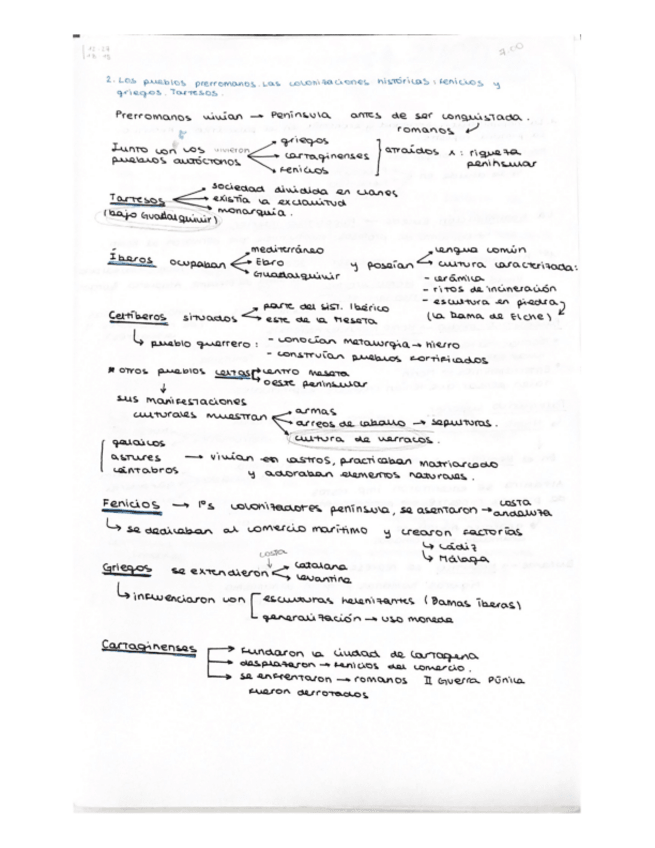 2. Los pueblos prerromanos. Las colonizaciones históricas: fenicios y
griegos. Tartesos.
Prerromanos vivían → Península antes de ser conquistada.
romanos
Junto con los vivieron → griegos
pueblos autóctonos → cartaginenses
→ fenicios
atraídos x: riqueza
peninsular
Tartesos → sociedad dividida en clanes
→ existía la esclavitud
→ monarquía.
(bajo Guadalquivir)
Íberos ocupaban → mediterráneo
→ Ebro
→ Guadalquivir
y poseían → lengua común
→ cultura caracterizada:
- cerámica
- ritos de incineración
- escultura en piedra
(la Dama de Elche)
Celtíberos situados → parte del Sist. Ibérico
→ este de la Meseta
↳ pueblo guerrero: - conocían metalurgia → hierro
- construían pueblos fortificados
* otros pueblos celtas → centro meseta
→ oeste peninsular
↓
sus manifestaciones
culturales muestran → armas
→ arreos de caballo → sepulturas.
→ cultura de verracos.
galaicos
astures → vivían en castros, practicaban matriarcado
cántabros y adoraban elementos naturales.
Fenicios → 1ºs colonizadores península, se asentaron → costa
andaluza
↳ se dedicaban al comercio marítimo y crearon factorías
↳ Cádiz
↳ Málaga
costa
Griegos se extendieron → catalana
→ levantina
↳ influenciaron con [ esculturas helenizantes (Damas íberas)
generalización → uso moneda
Cartaginenses → Fundaron la ciudad de Cartagena
→ desplazaron → fenicios del comercio.
→ se enfrentaron → romanos II Guerra Púnica
fueron derrotados